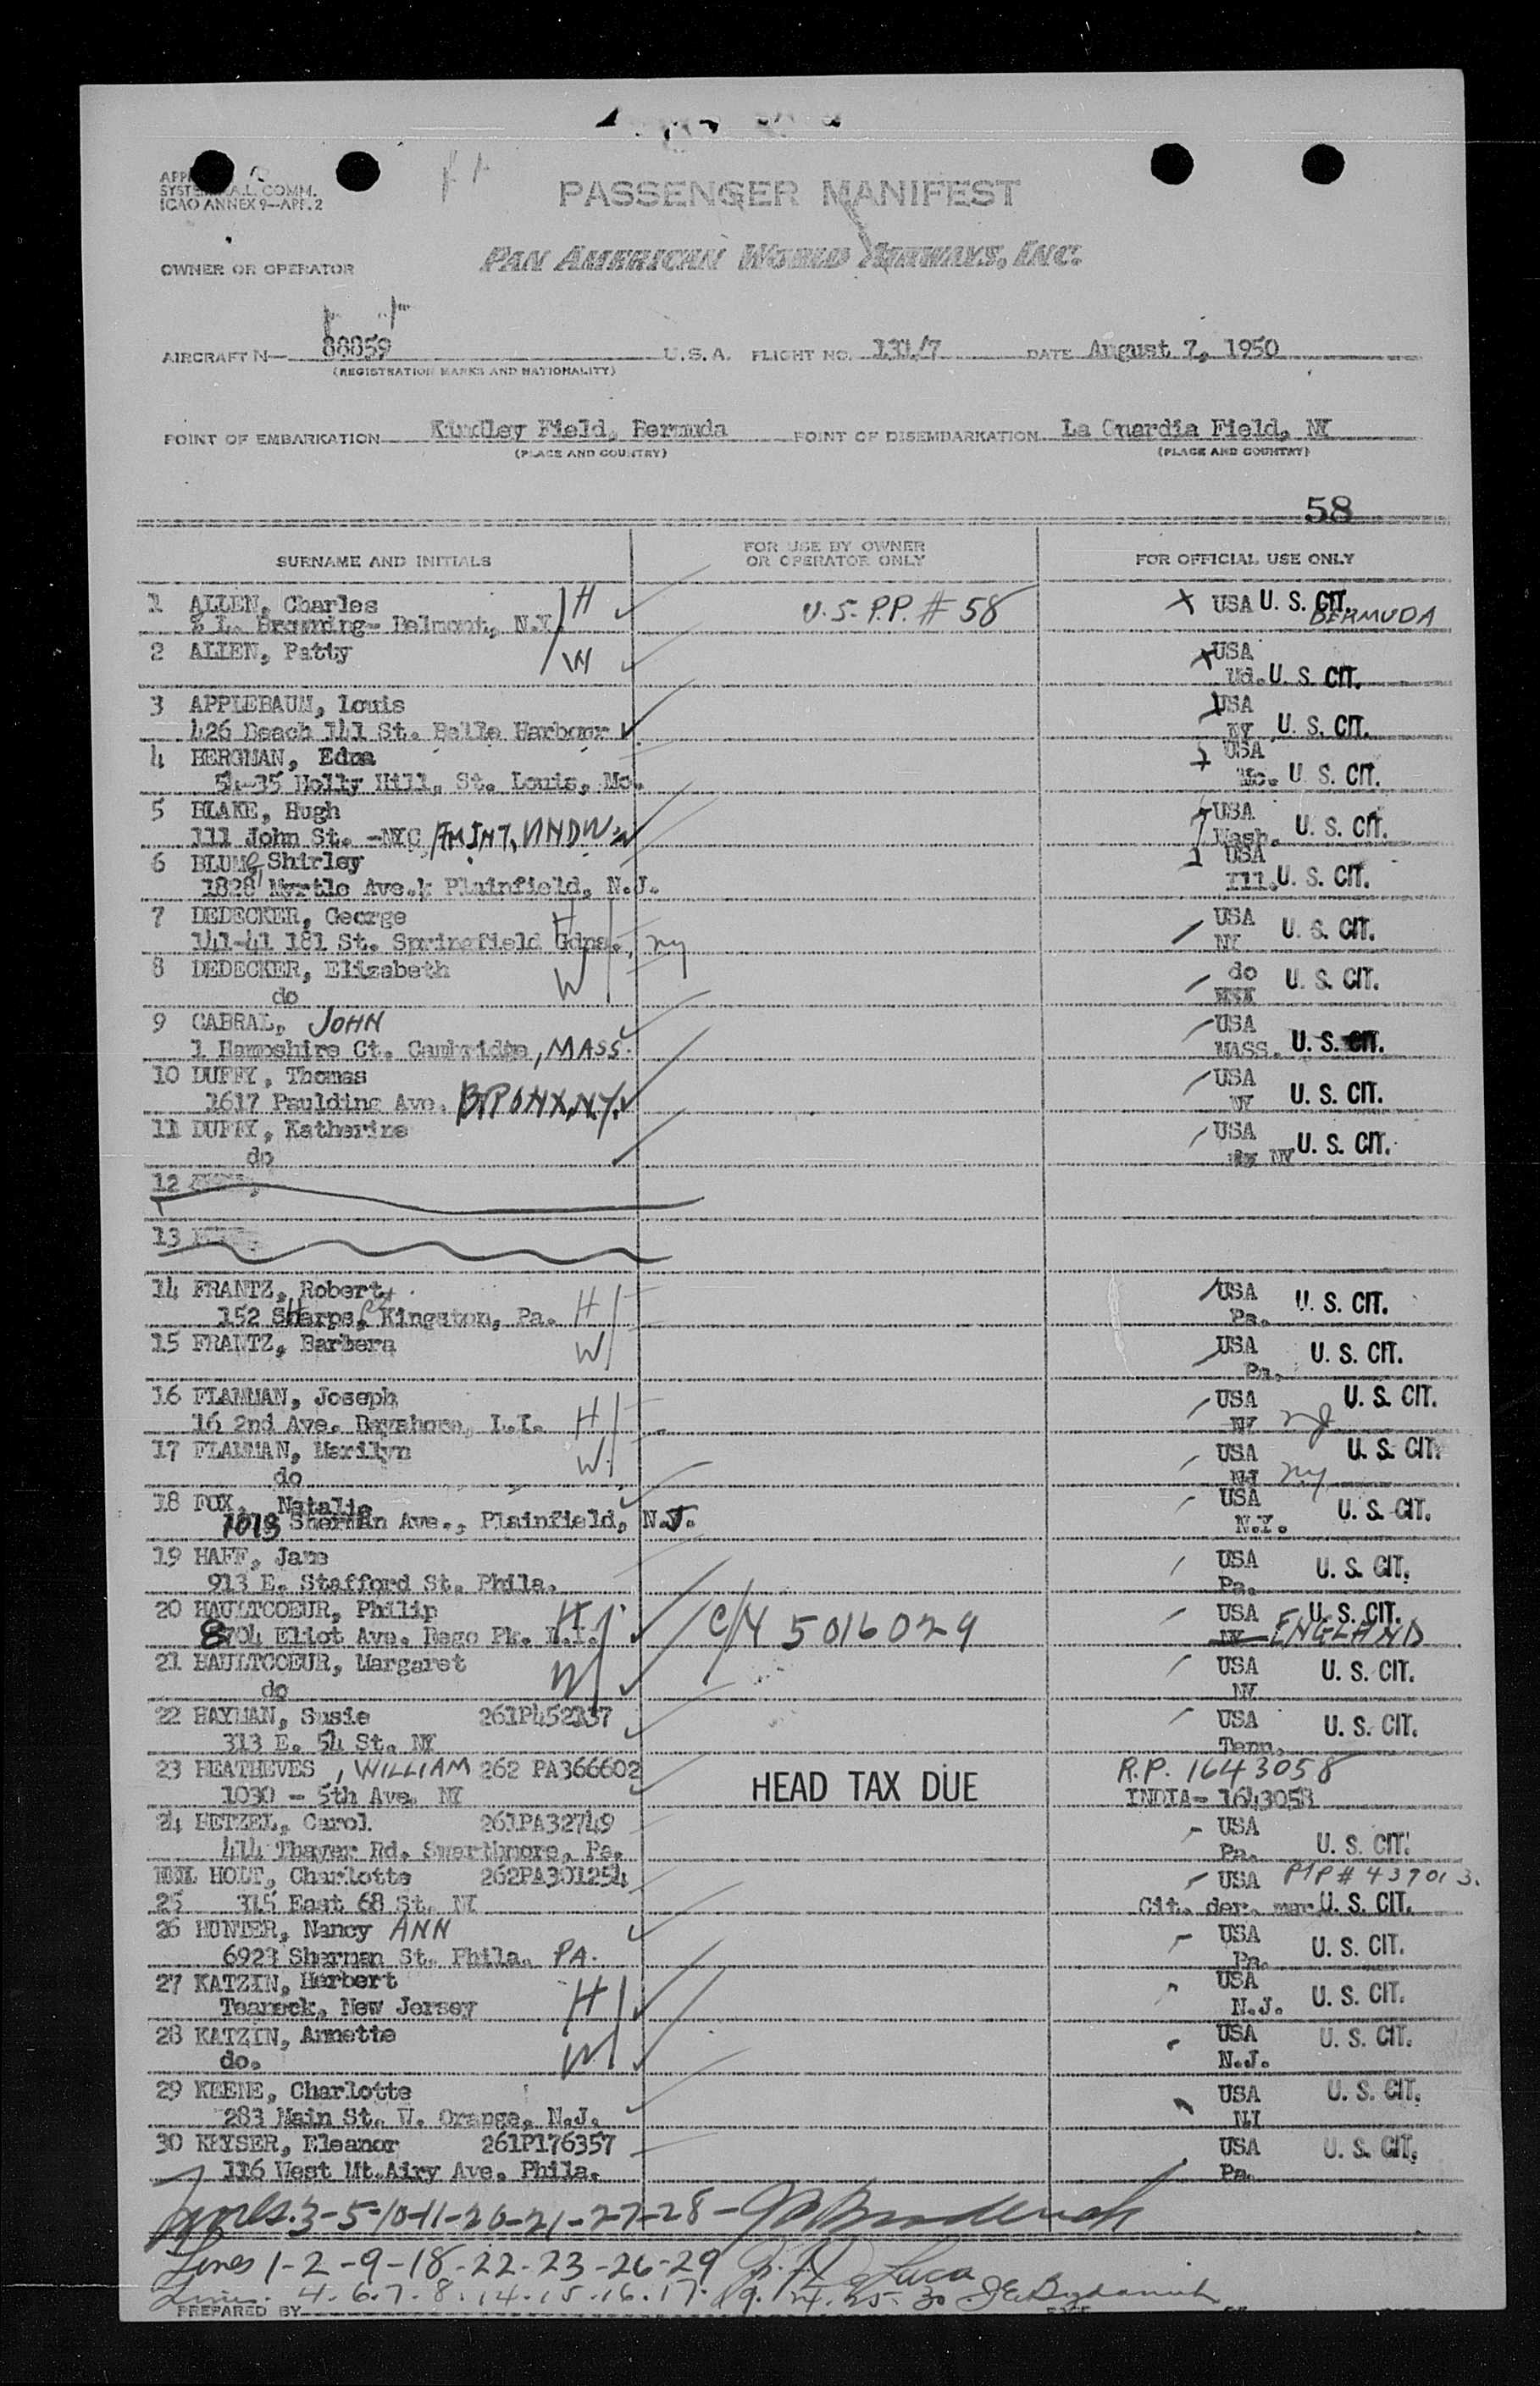 SYSTEM A.L. COMM.
ICAO ANNEX 9—APP. 2
PASSENGER MANIFEST
PAN AMERICAN WORLD AIRWAYS, INC.
OWNER OR OPERATOR
AIRCRAFT N— 88859 U.S.A. FLIGHT NO. 131/7 DATE August 7, 1950
(REGISTRATION MARKS AND NATIONALITY)
POINT OF EMBARKATION Kindley Field, Bermuda POINT OF DISEMBARKATION La Guardia Field, NY
(PLACE AND COUNTRY) (PLACE AND COUNTRY)
58
SURNAME AND INITIALS FOR USE BY OWNER OR OPERATOR ONLY FOR OFFICIAL USE ONLY
1 ALLEN, Charles H U.S. P.P. # 58 X USA U. S. CIT.
% L. Browning- Belmont, N.Y. BERMUDA
2 ALLEN, Patty W X USA
Md. U. S. CIT.
3 APPLEBAUM, Louis USA
426 Beach 141 St. Belle Harbour NY U. S. CIT.
4 BERGMAN, Edna USA
54-35 Holly Hill, St. Louis, Mo. Mo. U. S. CIT.
5 BLAKE, Hugh USA
111 John St. -NYC Wash. U. S. CIT.
6 BLUME, Shirley USA
1828 Myrtle Ave., Plainfield, N.J. Ill. U. S. CIT.
7 DEDECKER, George H USA
141-41 181 St. Springfield Gdns., ny NY U. S. CIT.
8 DEDECKER, Elizabeth W do U. S. CIT.
do
9 CABRAL, JOHN USA
1 Hampshire Ct. Cambridge, MASS. MASS. U. S. CIT.
10 DUFFY, Thomas USA
1617 Paulding Ave. BRONX, N.Y. NY U. S. CIT.
11 DUFFY, Katherine USA
do NY U. S. CIT.
12
13
14 FRANTZ, Robert H USA U. S. CIT.
152 Sharps, Kingston, Pa. Pa.
15 FRANTZ, Barbera W USA U. S. CIT.
Pa.
16 FLAMMAN, Joseph H USA U. S. CIT.
16 2nd Ave. Bayshore, L.I. NY
17 FLAMMAN, Marilyn W USA U. S. CIT.
do ny
18 FOX, Natalie USA U. S. CIT.
1013 Sherman Ave., Plainfield, N.J. N.Y.
19 HAFF, Jane USA U. S. CIT.
913 E. Stafford St. Phila. Pa.
20 HAULTCOEUR, Philip H C/N 5016029 USA U. S. CIT.
8704 Eliot Ave. Rego Pk. L.I. NY ENGLAND
21 HAULTCOEUR, Margaret W USA U. S. CIT.
do NY
22 HAYMAN, Susie 261P452137 USA U. S. CIT.
313 E. 54 St. NY Tenn.
23 HEATHEVES, WILLIAM 262 PA366602 HEAD TAX DUE R.P. 1643058
1030 - 5th Ave. NY INDIA- 1643058
24 HETZEL, Carol 261PA32749 USA
414 Thayer Rd. Swarthmore, Pa. Pa. U. S. CIT.
HOLT, Charlotte 262PA301254 USA
25 315 East 68 St. NY Cit. der. mar U. S. CIT.
26 HUNTER, Nancy ANN USA U. S. CIT.
6923 Sherman St. Phila. PA. Pa.
27 KATZIN, Herbert H USA U. S. CIT.
Teaneck, New Jersey N.J.
28 KATZIN, Annette W USA U. S. CIT.
do. N.J.
29 KEENE, Charlotte USA U. S. CIT.
283 Main St. W. Orange, N.J. NJ
30 KEYSER, Eleanor 261P176357 USA U. S. CIT.
116 West Mt.Airy Ave. Phila. Pa.
Lines 3-5-10-11-20-21-27-28-
Lines 1-2-9-18-22-23-26-29
Lines 4.6.7.8.14.15.16.17.19.24.25.30
PREPARED BY